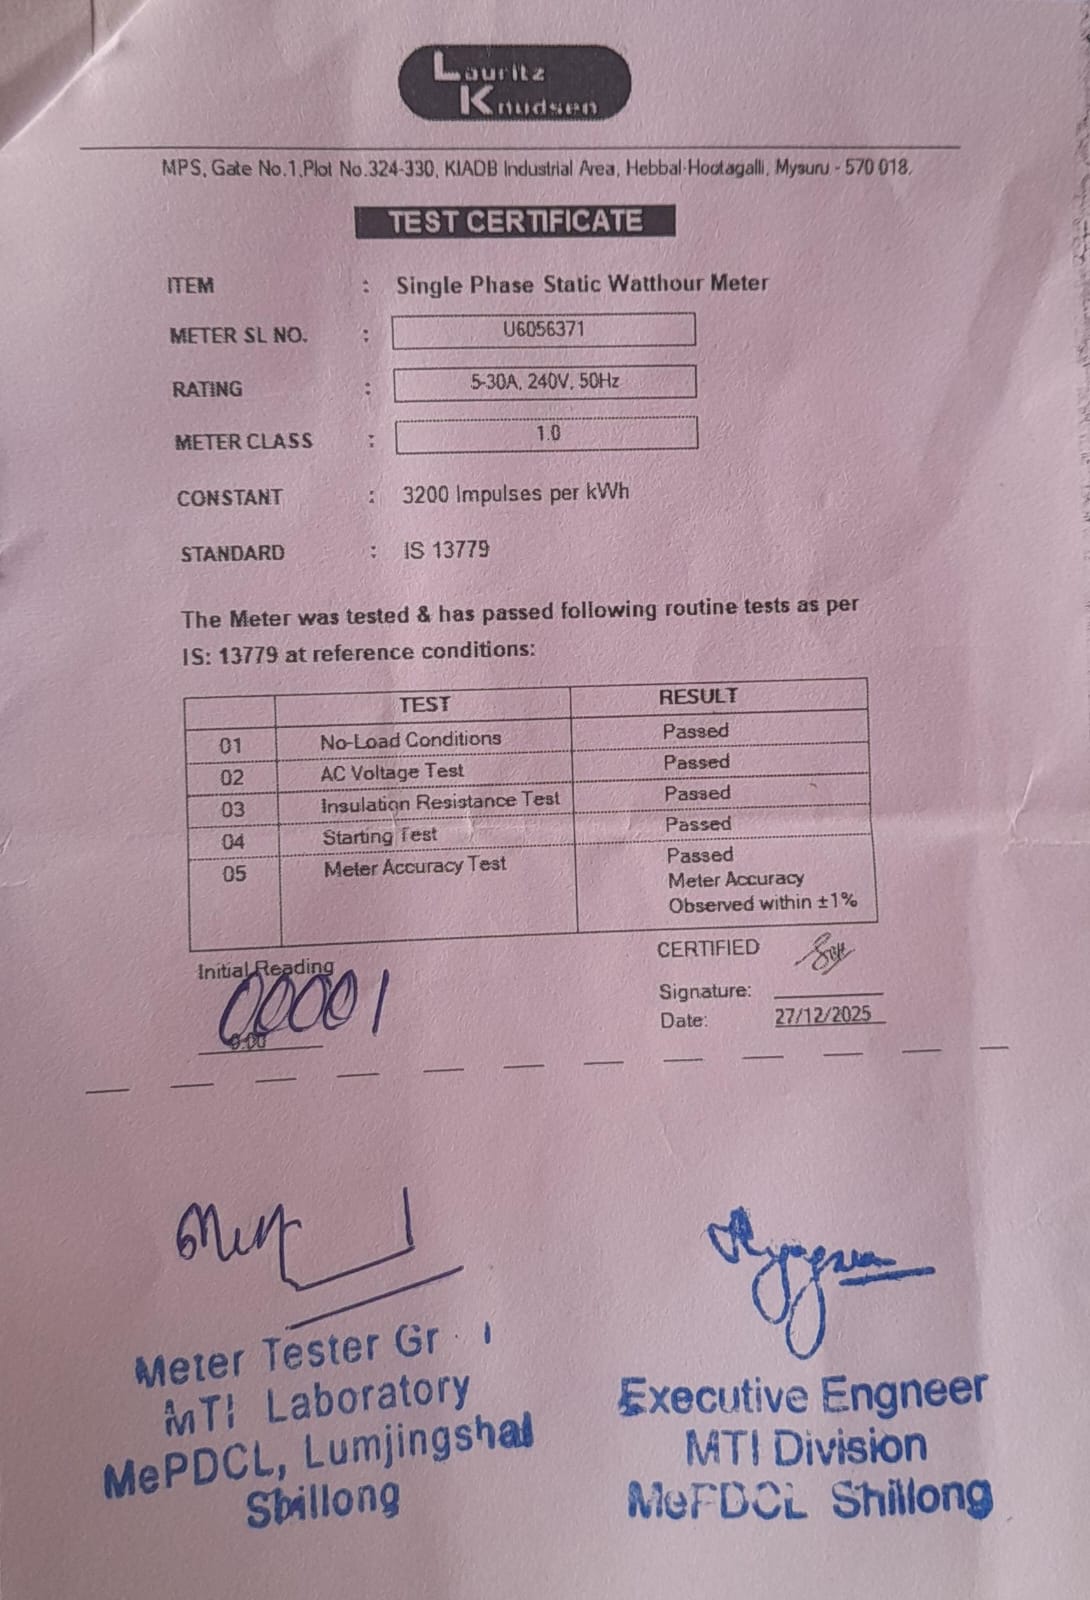 Lauritz
Knudsen
MPS, Gate No.1,Plot No.324-330, KIADB Industrial Area, Hebbal-Hootagalli, Mysuru - 570 018.
TEST CERTIFICATE
ITEM : Single Phase Static Watthour Meter
METER SL NO. : U6056371
RATING : 5-30A, 240V, 50Hz
METER CLASS : 1.0
CONSTANT : 3200 Impulses per kWh
STANDARD : IS 13779
The Meter was tested & has passed following routine tests as per
IS: 13779 at reference conditions:
TEST RESULT
01 No-Load Conditions Passed
02 AC Voltage Test Passed
03 Insulation Resistance Test Passed
04 Starting Test Passed
05 Meter Accuracy Test Passed
Meter Accuracy
Observed within ±1%
Initial Reading
00001
0.00
CERTIFIED
Signature:
Date: 27/12/2025
Meter Tester Gr. I
MTI Laboratory
MePDCL, Lumjingshai
Shillong
Executive Engneer
MTI Division
MePDCL Shillong